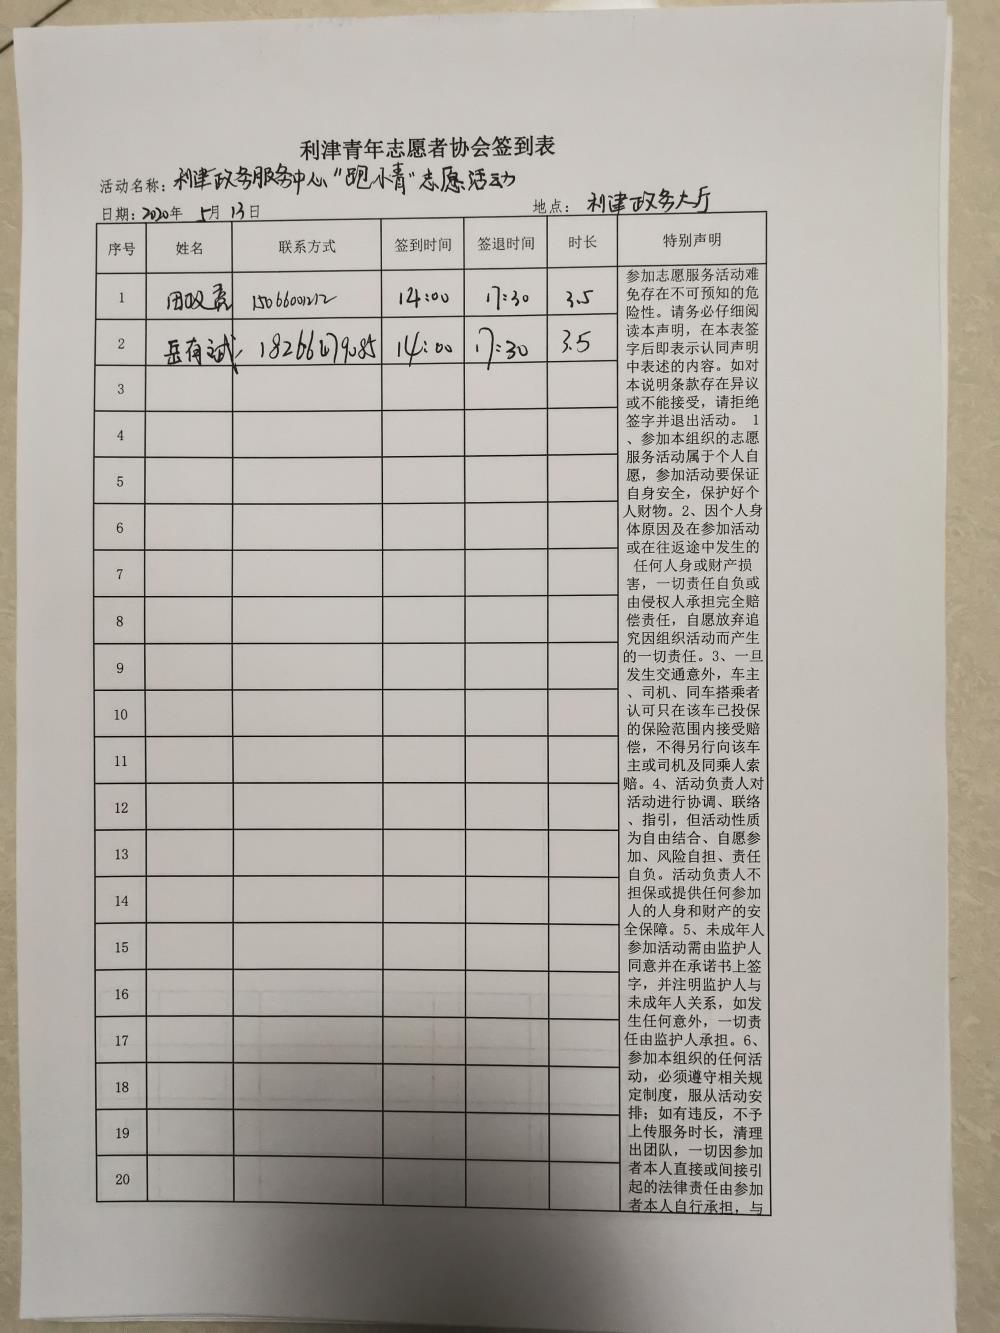 利津青年志愿者协会签到表
活动名称：利津政务服务中心“跑小青”志愿活动
日期：2020年 5月 13日 地点：利津政务大厅
序号 姓名 联系方式 签到时间 签退时间 时长 特别声明
1 田 15066001212 14:00 17:30 3.5
2 岳有斌 14:00 17:30 3.5
3
4
5
6
7
8
9
10
11
12
13
14
15
16
17
18
19
20
参加志愿服务活动难
免存在不可预知的危
险性。请务必仔细阅
读本声明，在本表签
字后即表示认同声明
中表述的内容。如对
本说明条款存在异议
或不能接受，请拒绝
签字并退出活动。 1
、参加本组织的志愿
服务活动属于个人自
愿，参加活动要保证
自身安全，保护好个
人财物。2、因个人身
体原因及在参加活动
或在往返途中发生的
任何人身或财产损
害，一切责任自负或
由侵权人承担完全赔
偿责任，自愿放弃追
究因组织活动而产生
的一切责任。3、一旦
发生交通意外，车主
、司机、同车搭乘者
认可只在该车已投保
的保险范围内接受赔
偿，不得另行向该车
主或司机及同乘人索
赔。4、活动负责人对
活动进行协调、联络
、指引，但活动性质
为自由结合、自愿参
加、风险自担、责任
自负。活动负责人不
担保或提供任何参加
人的人身和财产的安
全保障。5、未成年人
参加活动需由监护人
同意并在承诺书上签
字，并注明监护人与
未成年人关系，如发
生任何意外，一切责
任由监护人承担。6、
参加本组织的任何活
动，必须遵守相关规
定制度，服从活动安
排；如有违反，不予
上传服务时长，清理
出团队，一切因参加
者本人直接或间接引
起的法律责任由参加
者本人自行承担，与